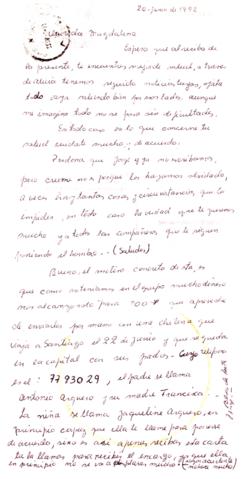 20-junio de 1992
Querida Magdalena
Espero que al recibo de
la presente, te encuentres mejor de salud, a través
de Silvia tenemos seguido noticias tuyas, ojalá
todo vaya saliendo bien por esos lados, aunque
me imagino todo no ha para ser dificultades.
En todo caso en lo que concierne tu
salud cuídate mucho, de acuerdo.
Perdona que José y yo no escribamos,
pero creeme no es porque los hayamos olvidado,
a veces hay tantas cosas y circunstancias que lo
impiden, en todo caso la verdad que te queremos
mucho y a todos los compañeros que te siguen
poniendo el hombro. - (Saludos)
Bueno, el motivo concreto de ésta, es
que como teníamos en el grupo mucho dinero
nos alcanzando para "00" que aproveché
de enviarlos por mano con una chilena que
viaja a Santiago el 22 de junio y que se queda
en la capital con sus padres - Cuyo teléfono
es el: 7793029, el padre se llama
Antonio Arquero y su madre Francisca. -
La niña se llama Jaqueline Arquero, en
principio capaz que ella te llame para ponerse
de acuerdo, sino es así apenas recibas esta carta
tú la llamas para recibir el encargo, ya que ella
en principio no se va a quedar mucho.